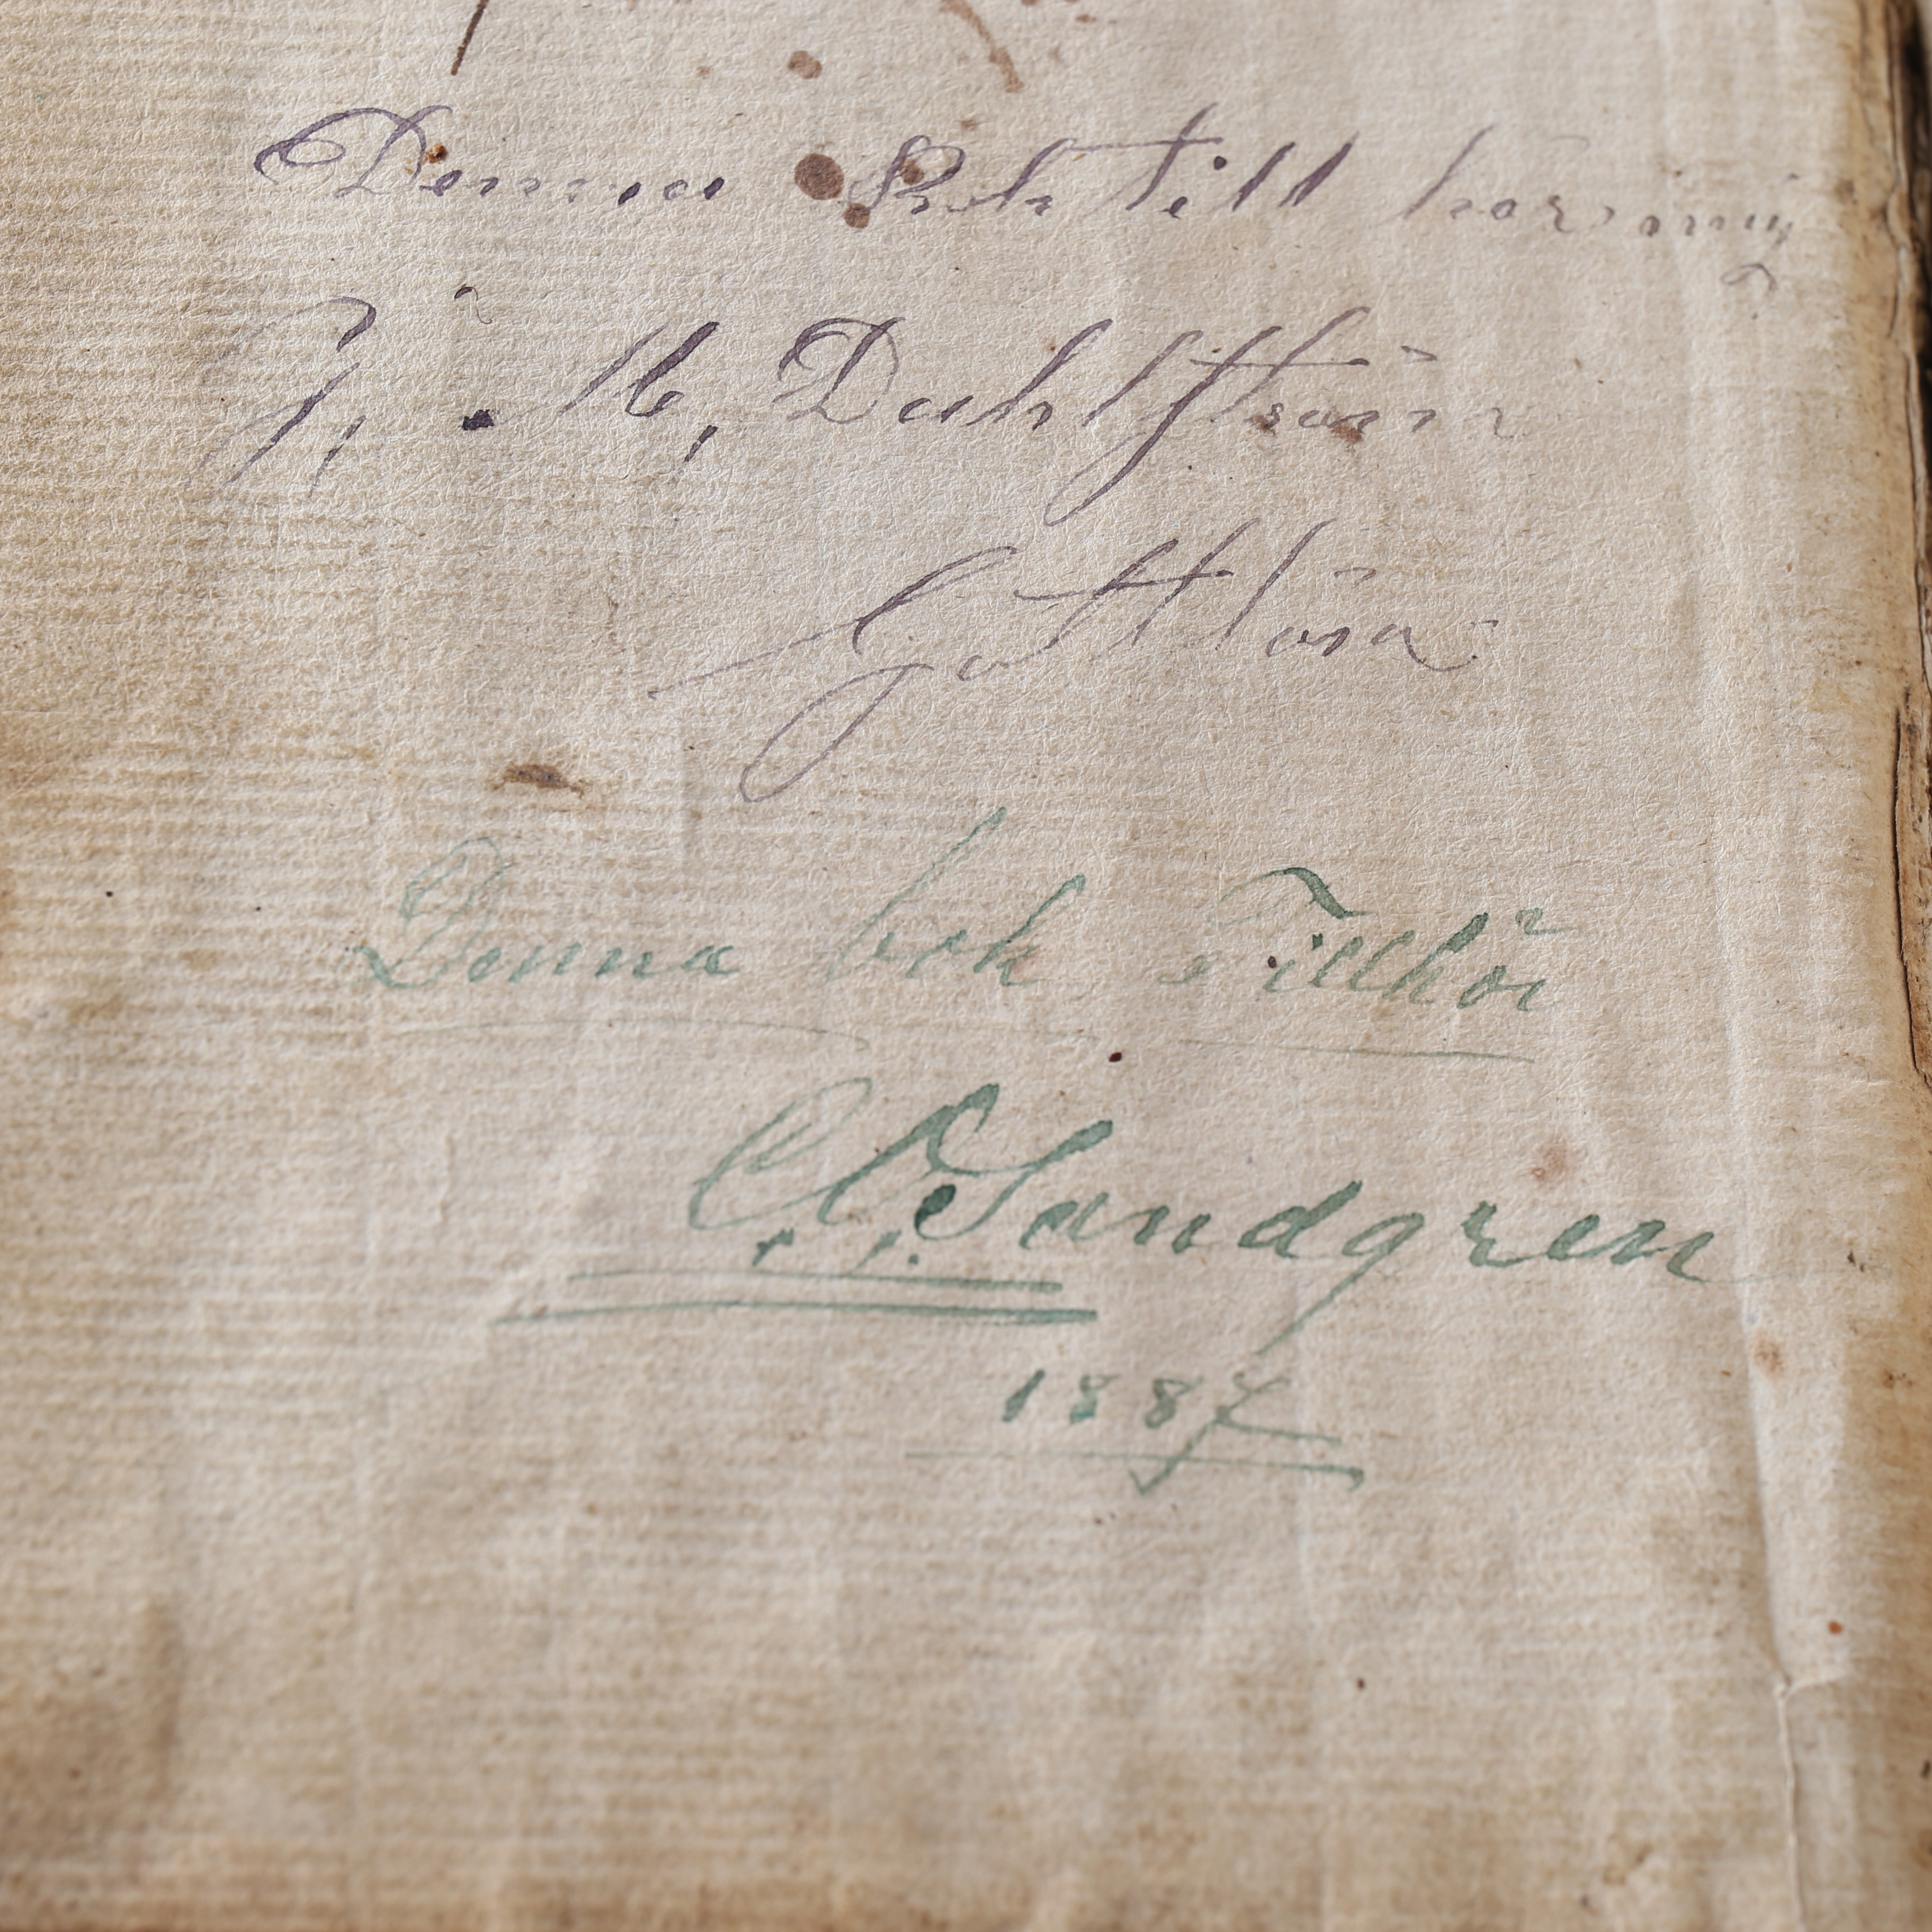 Denna Bok till hör mig
J, M, Dahlström
Gottlösa
Denna bok Tillhör
C. A. Sandgren
1887